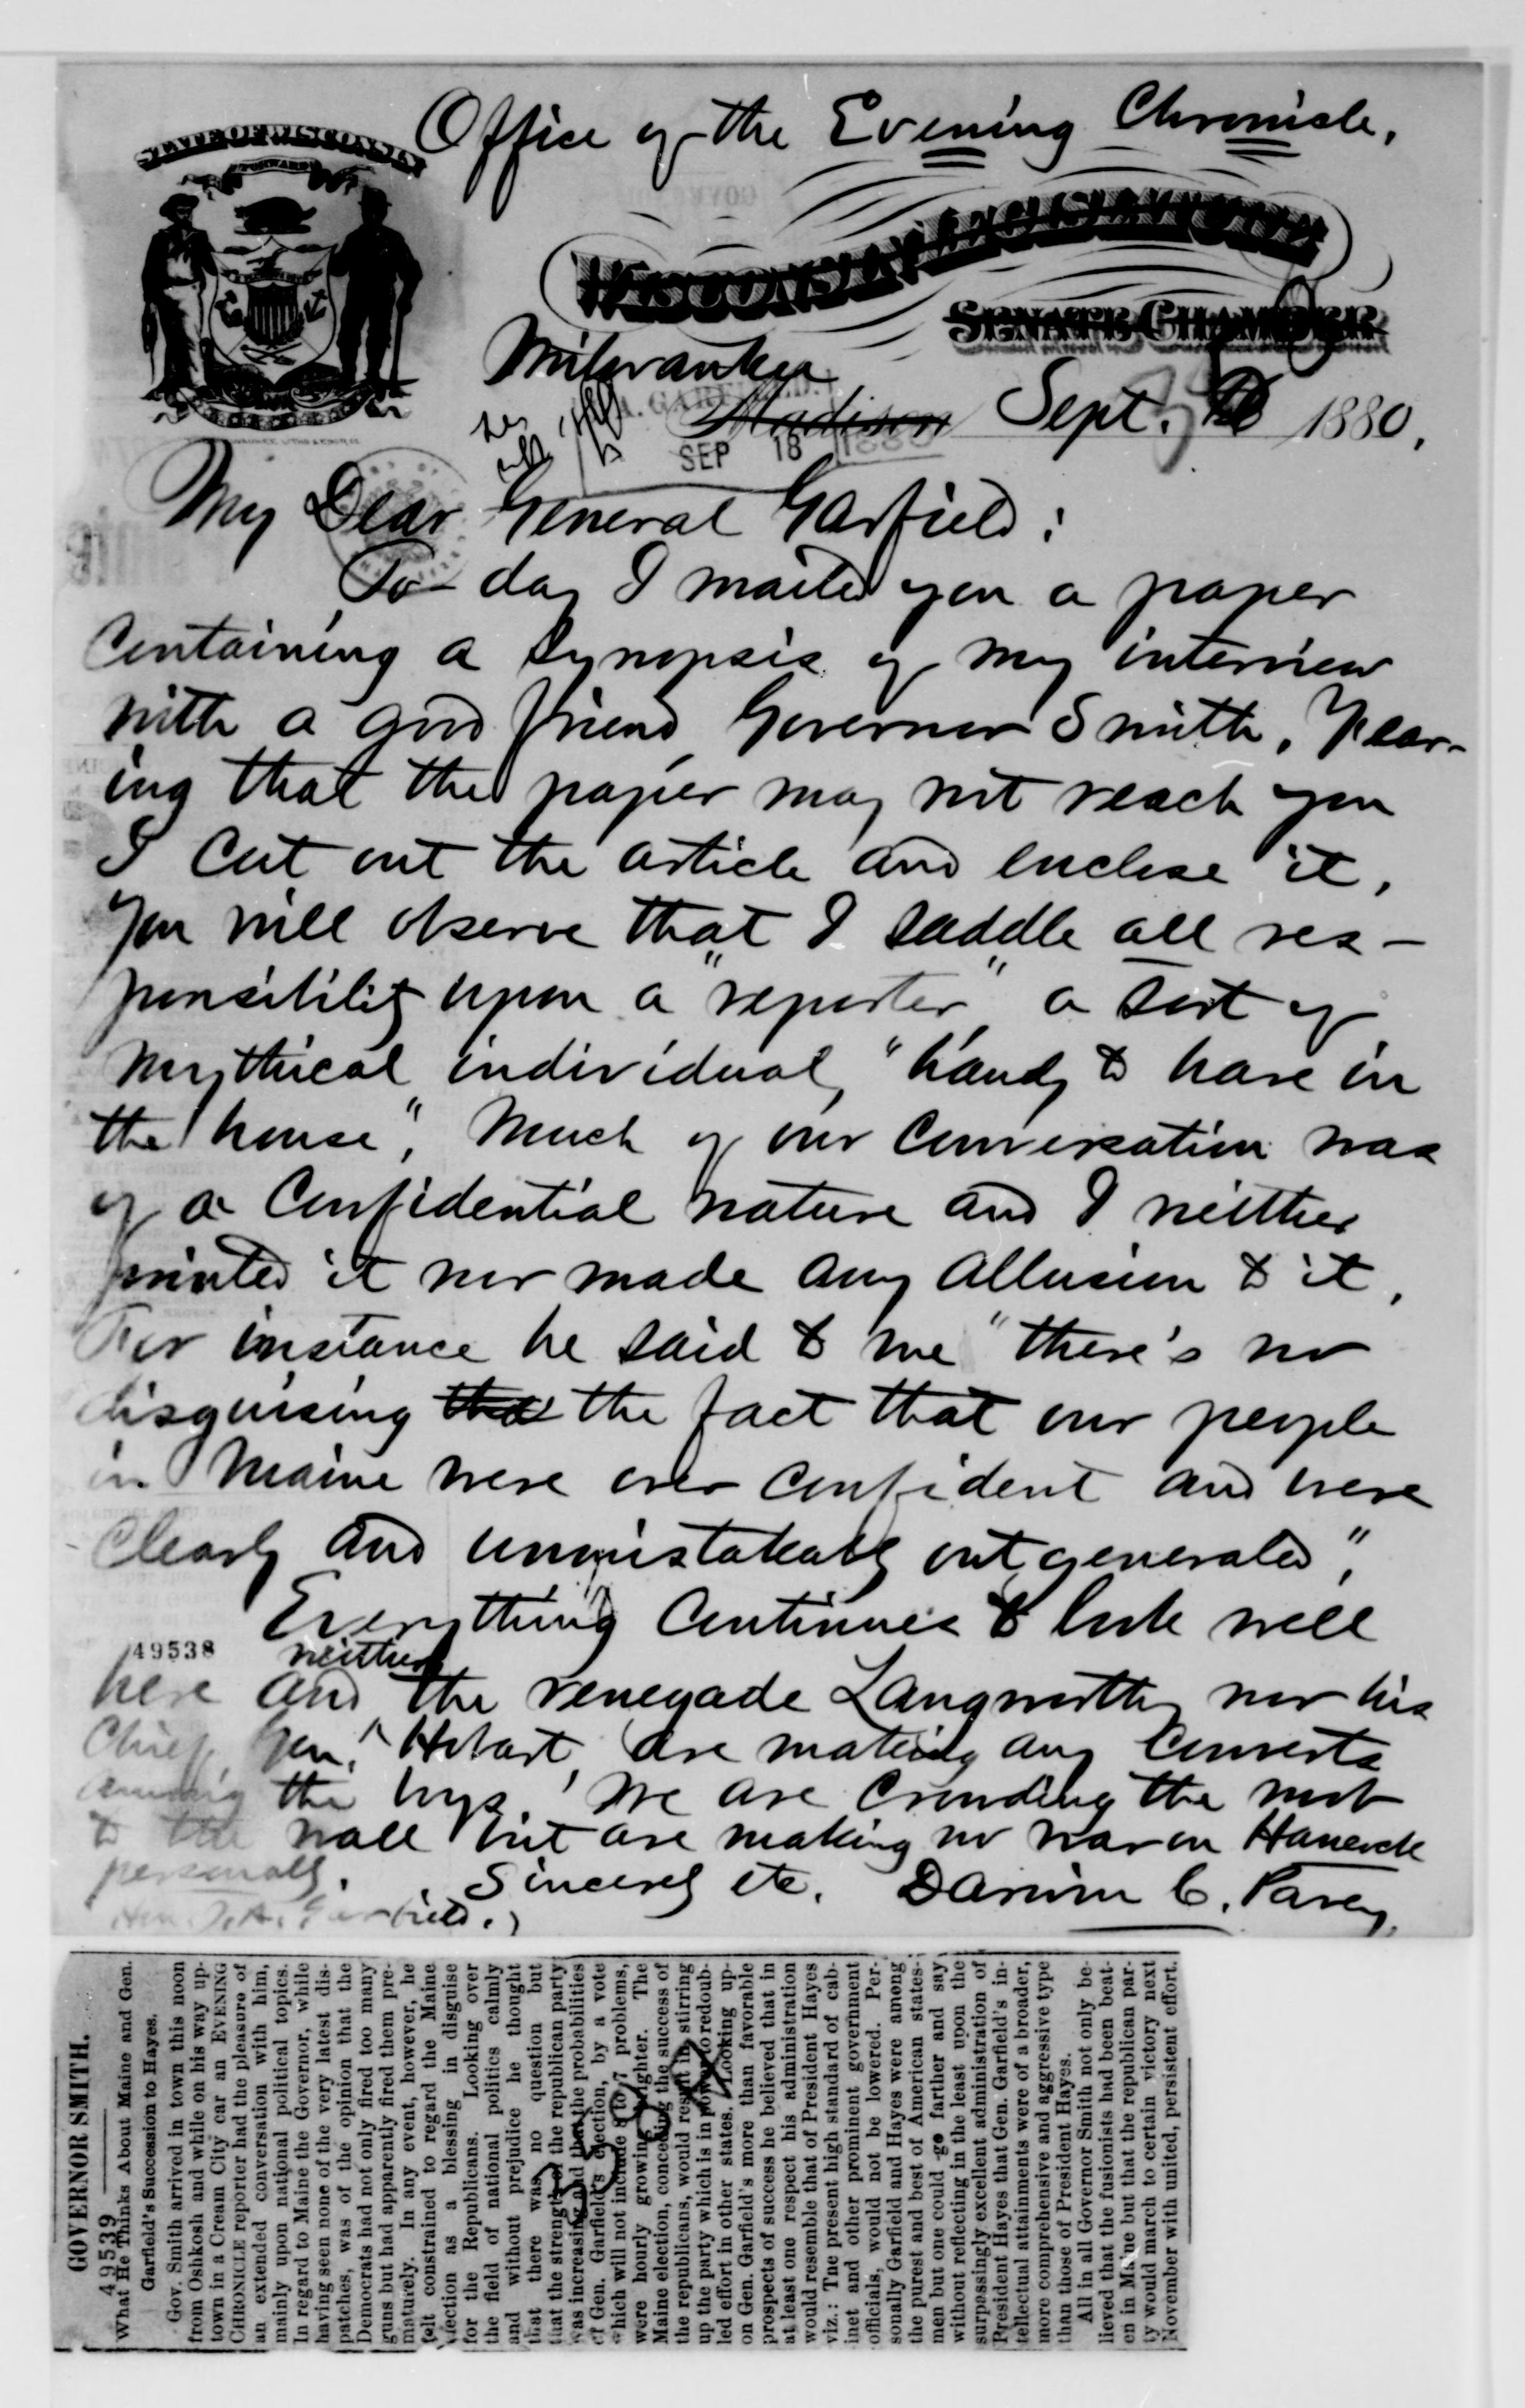 Office of the Evening Chronicle,
STATE OF WISCONSIN
FORWARD
WISCONSIN LEGISLATURE
SENATE CHAMBER
Milwaukee
Madison Sept. 1880.
SEP 18 1880
My Dear General Garfield:
To-day I mailed you a paper
containing a synopsis of my interview
with a good friend Governor Smith. Fear-
ing that the paper may not reach you
I cut out the article and enclose it.
You will observe that I saddle all res-
ponsibility upon a "reporter" a sort of
mythical individual, "handy to have in
the house". Much of our conversation was
of a confidential nature and I neither
printed it nor made any allusion to it.
For instance he said to me "there's no
disguising the the fact that our people
in Maine were over confident and were
clearly and unmistakably out generaled".
Everything continues to look well
49538
neither
here and the renegade Langworthy nor his
Chief, Gen. Hobart, are making any converts
among the boys. We are crowding the mob
to the wall but are making no war on Hancock
personally. Sincerely etc. Darwin C. Pavey.
Hon. J. A. Garfield.
GOVERNOR SMITH.
49539
What He Thinks About Maine and Gen.
Garfield's Succession to Hayes.
Gov. Smith arrived in town this noon
from Oshkosh and while on his way up-
town in a Cream City car an EVENING
CHRONICLE reporter had the pleasure of
an extended conversation with him,
mainly upon national political topics.
In regard to Maine the Governor, while
having seen none of the very latest dis-
patches, was of the opinion that the
Democrats had not only fired too many
guns but had apparently fired them pre-
maturely. In any event, however, he
felt constrained to regard the Maine
election as a blessing in disguise
for the Republicans. Looking over
the field of national politics calmly
and without prejudice he thought
that there was no question but
that the strength of the republican party
was increasing and that the probabilities
of Gen. Garfield's election, by a vote
which will not include 8 to 7 problems,
were hourly growing brighter. The
Maine election, conceding the success of
the republicans, would result in stirring
up the party which is in power to redoub-
led effort in other states. Looking up-
on Gen. Garfield's more than favorable
prospects of success he believed that in
at least one respect his administration
would resemble that of President Hayes
viz.: The present high standard of cab-
inet and other prominent government
officials, would not be lowered. Per-
sonally Garfield and Hayes were among
the purest and best of American states-
men but one could go farther and say
without reflecting in the least upon the
surpassingly excellent administration of
President Hayes that Gen. Garfield's in-
tellectual attainments were of a broader,
more comprehensive and aggressive type
than those of President Hayes.
All in all Governor Smith not only be-
lieved that the fusionists had been beat-
en in Maine but that the republican par-
ty would march to certain victory next
November with united, persistent effort.